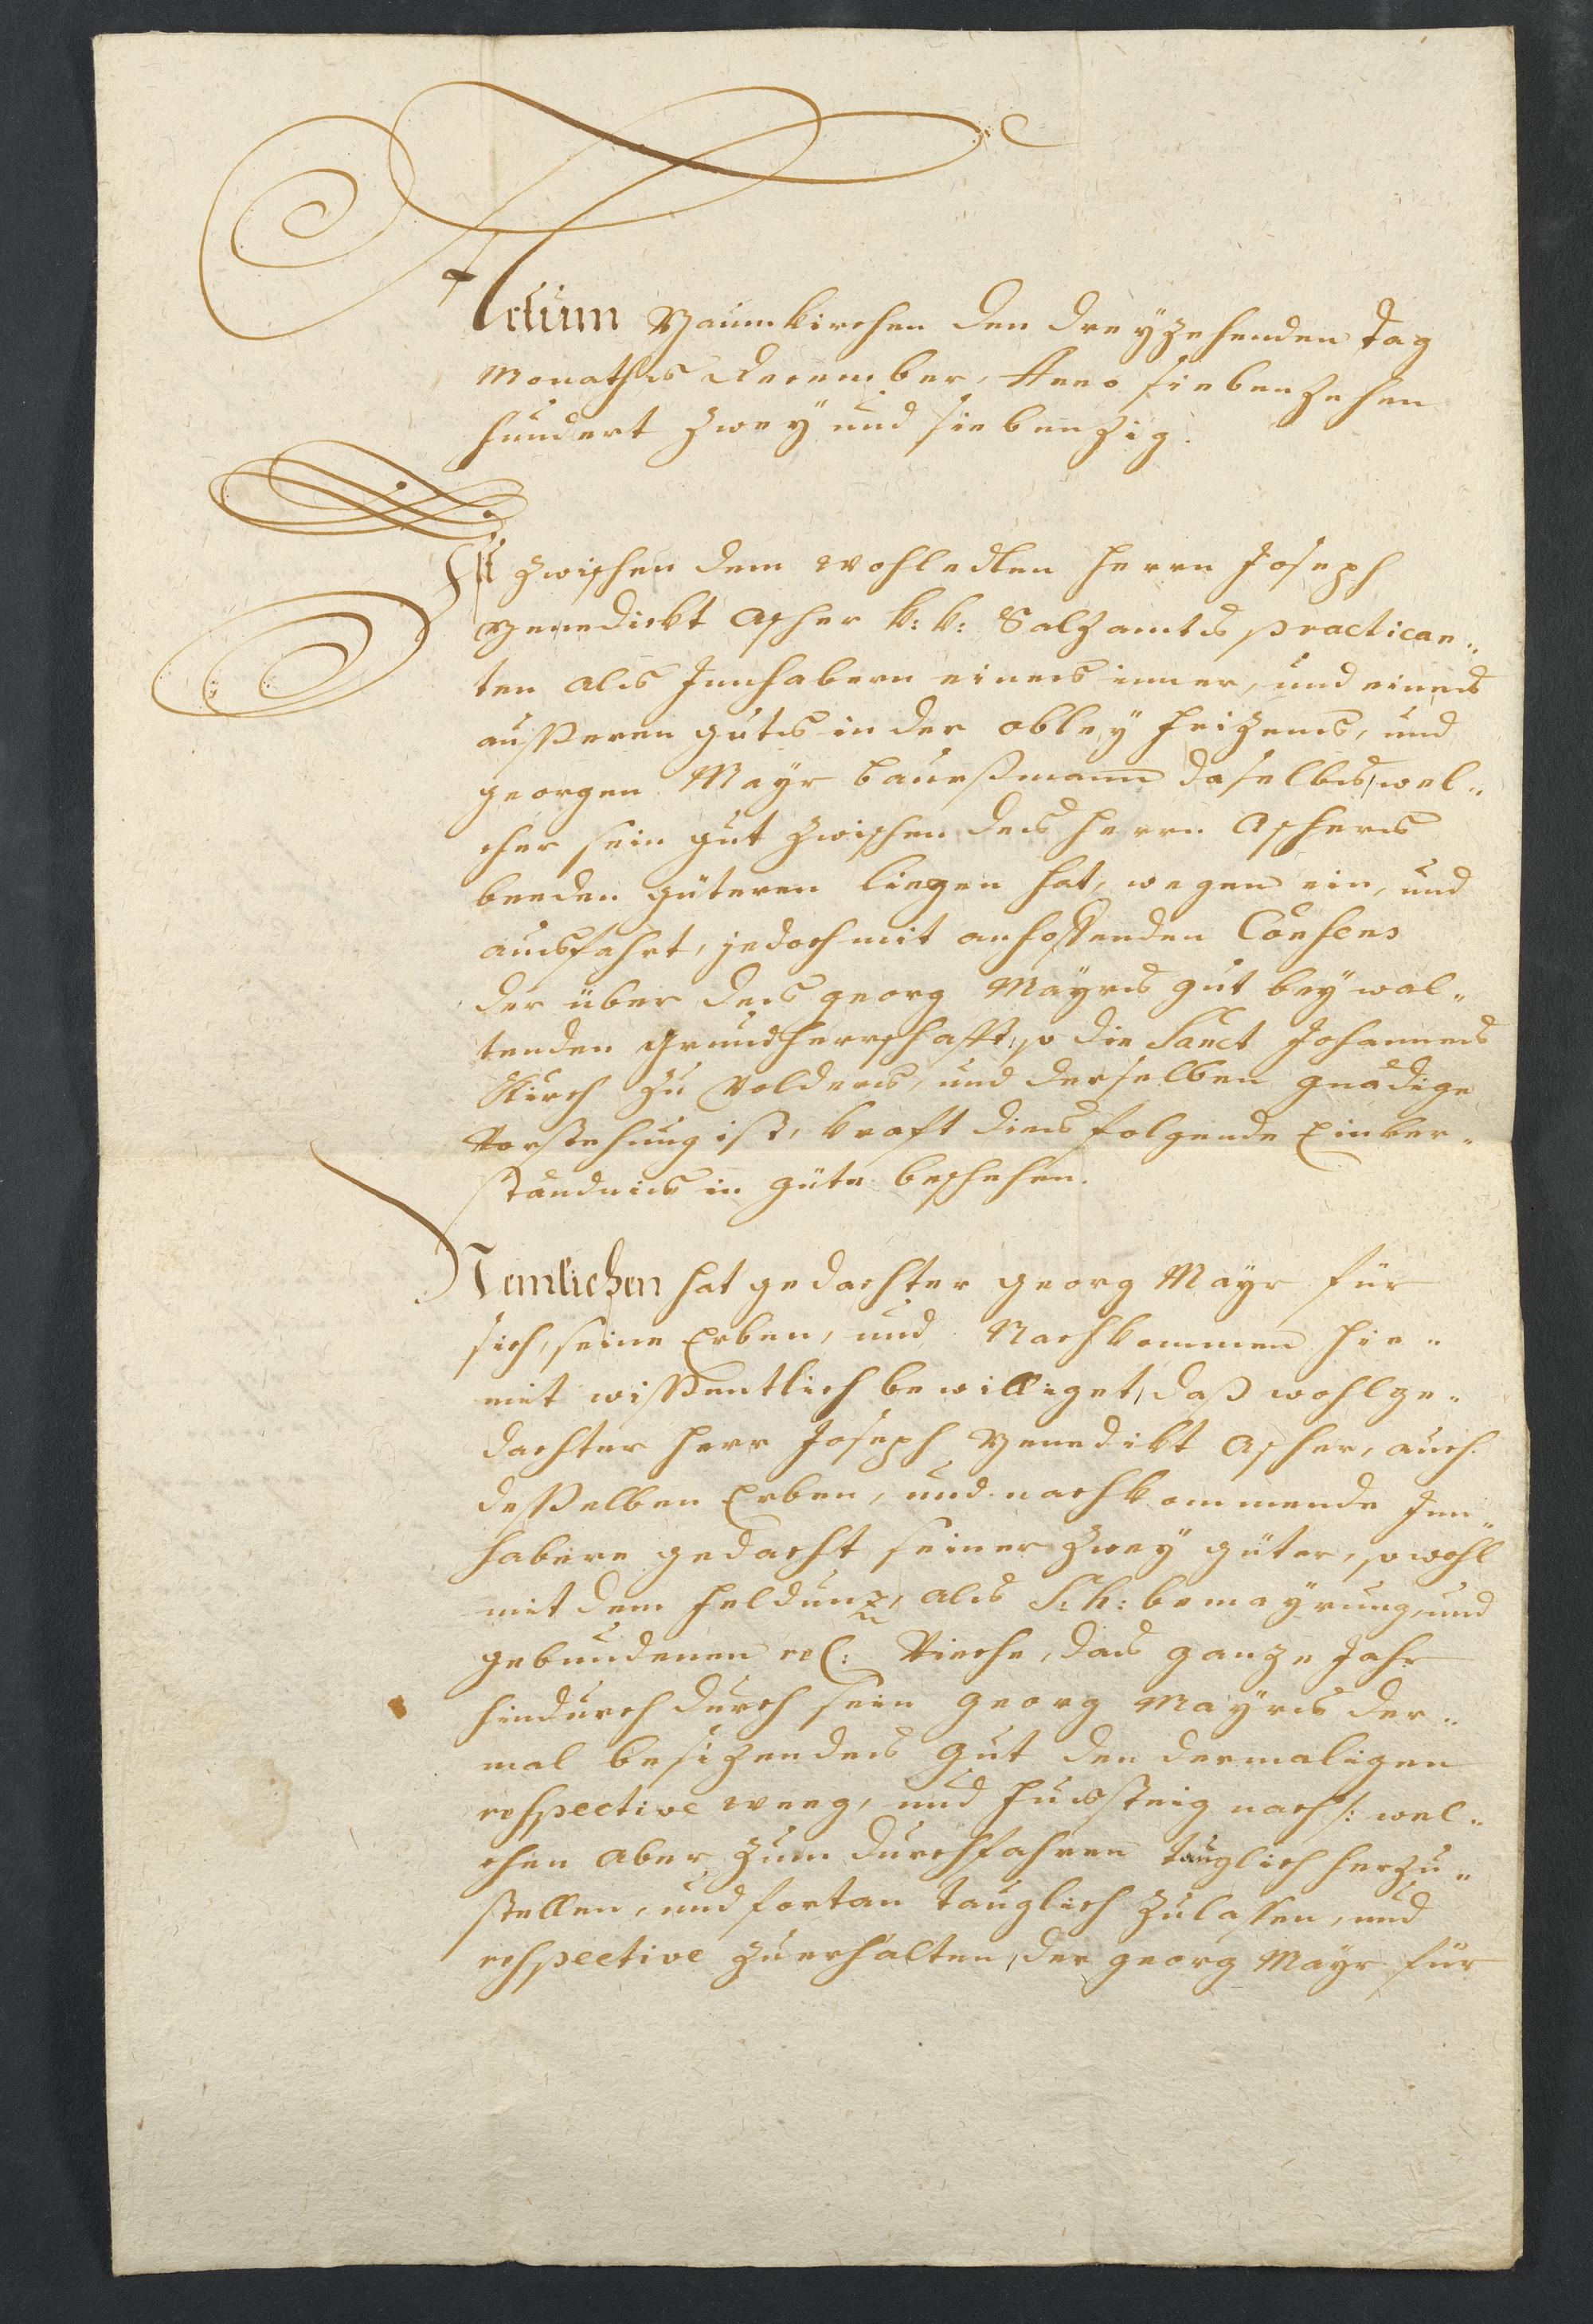 Actum Baumkirchen den dreyzehenden Tag
Monaths December, Anno siebenzehen
hundert zwey und siebenzig.
Ist zwischen dem wohledlen Herrn Joseph
Benedickt Ascher k: k: Salzamts practican„
ten als Innhabern eines inner, und eines
ausseren guts in der obley Frizens, und
georgen Mayr baursmann daselbs, wel„
cher sein gut zwischen des Herrn Aschers
beeden güteren liegen hat, wegen ein, und
ausfahrt, jedoch mit anhoffenden Consens
der über des georg Mayrs gut beywal„
tenden grundherrschafft, so die Sanct Johannes
Kirch zu Volders, und derselben gnädige
Vorstehung ist, kraft dies folgende Einver„
ständnis in güte beschehen.
Nemlichen hat gedachter georg Mayr für
sich, seine Erben, und Nachkommen hie„
mit wissentlich bewilliget, daß wohlge„
dachter Herr Joseph Benedikt Ascher, auch
desselben Erben, und nachkommende Inn„
habere gedacht seiner zwey güter, sowohl
mit dem feldunz, als S: h: bemayrung, und
gebundenen rev: Vieche, das ganze Jahr
hindurch durch sein georg Mayrs der„
mal besizendes gut den dermaligen
respective weeg, und fuessteig nach /: wel„
chen aber zum durchfahren tauglich herzu„
stellen, und fortan tauglich zulassen, und
respective zuerhalten, der georg Mayr für